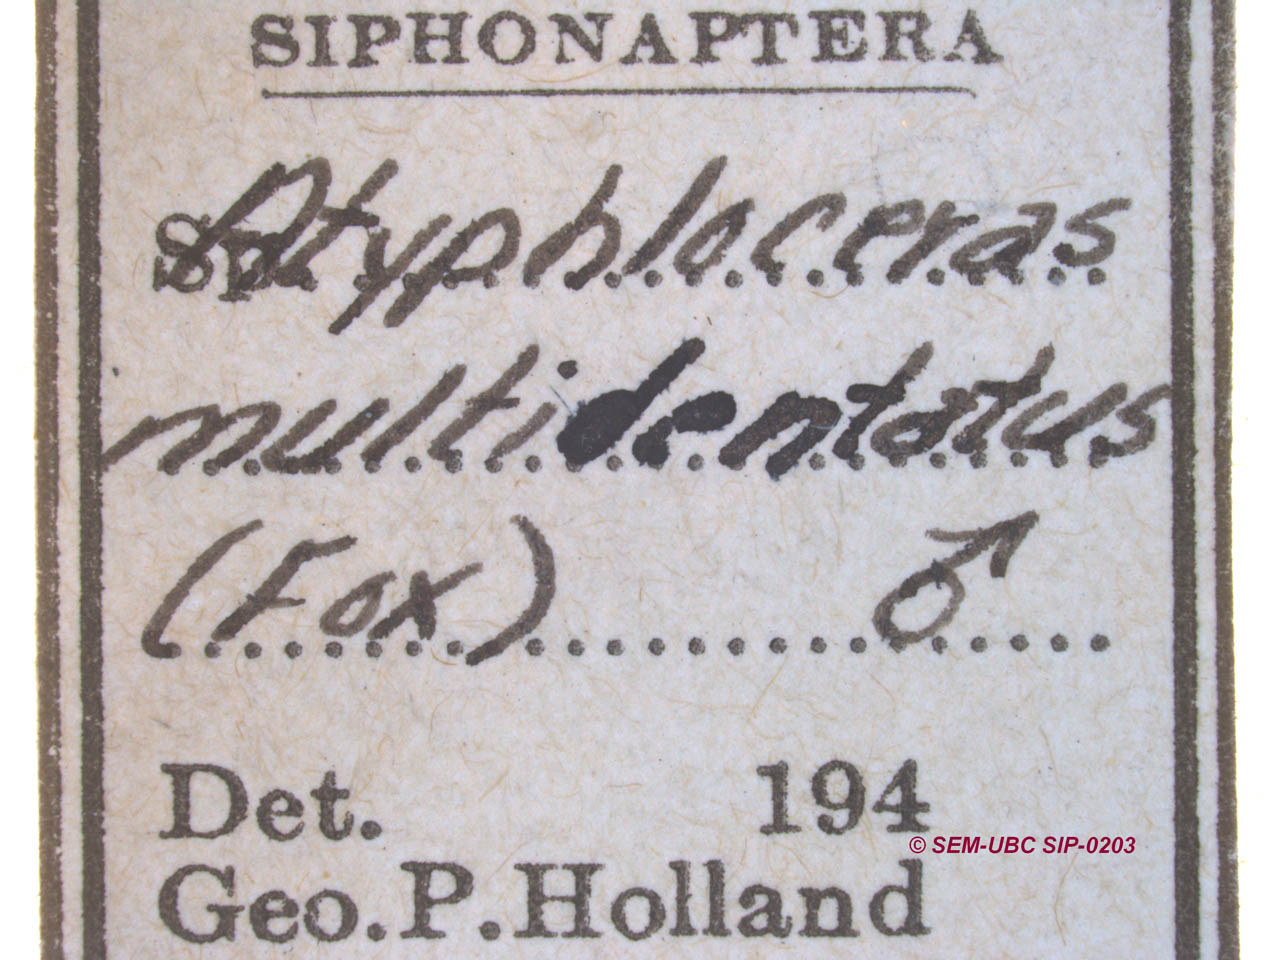 SIPHONAPTERA
Sp. Atyphloceras
multidentatus
(Fox) ♂
Det. 194
© SEM-UBC SIP-0203
Geo. P. Holland